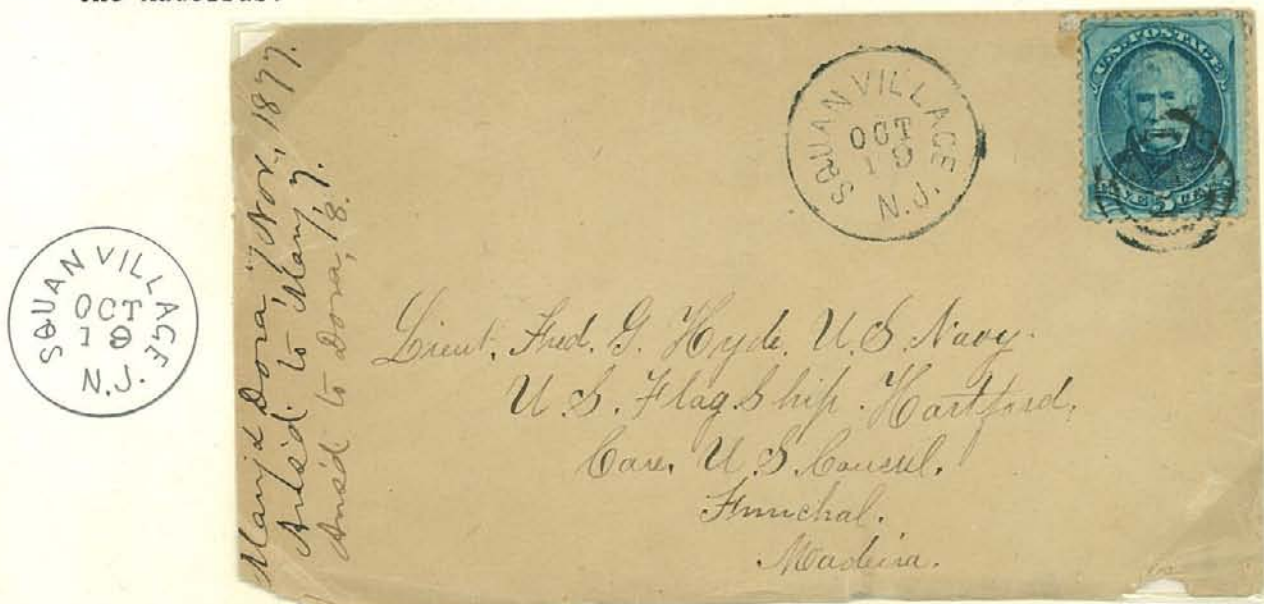 SQUAN VILLAGE
OCT
19
N.J.
Mary & Dora, Nov., 1877.
Ans'd to Mary 7.
Ans'd to Dora, 18.
SQUAN VILLAGE
OCT
19
N.J.
U.S. POSTAGE
FIVE 5 CENTS
Lieut. Fred. G. Hyde. U.S. Navy.
U.S. Flag Ship. Hartford,
Care, U.S. Consul,
Funchal.
Madeira.